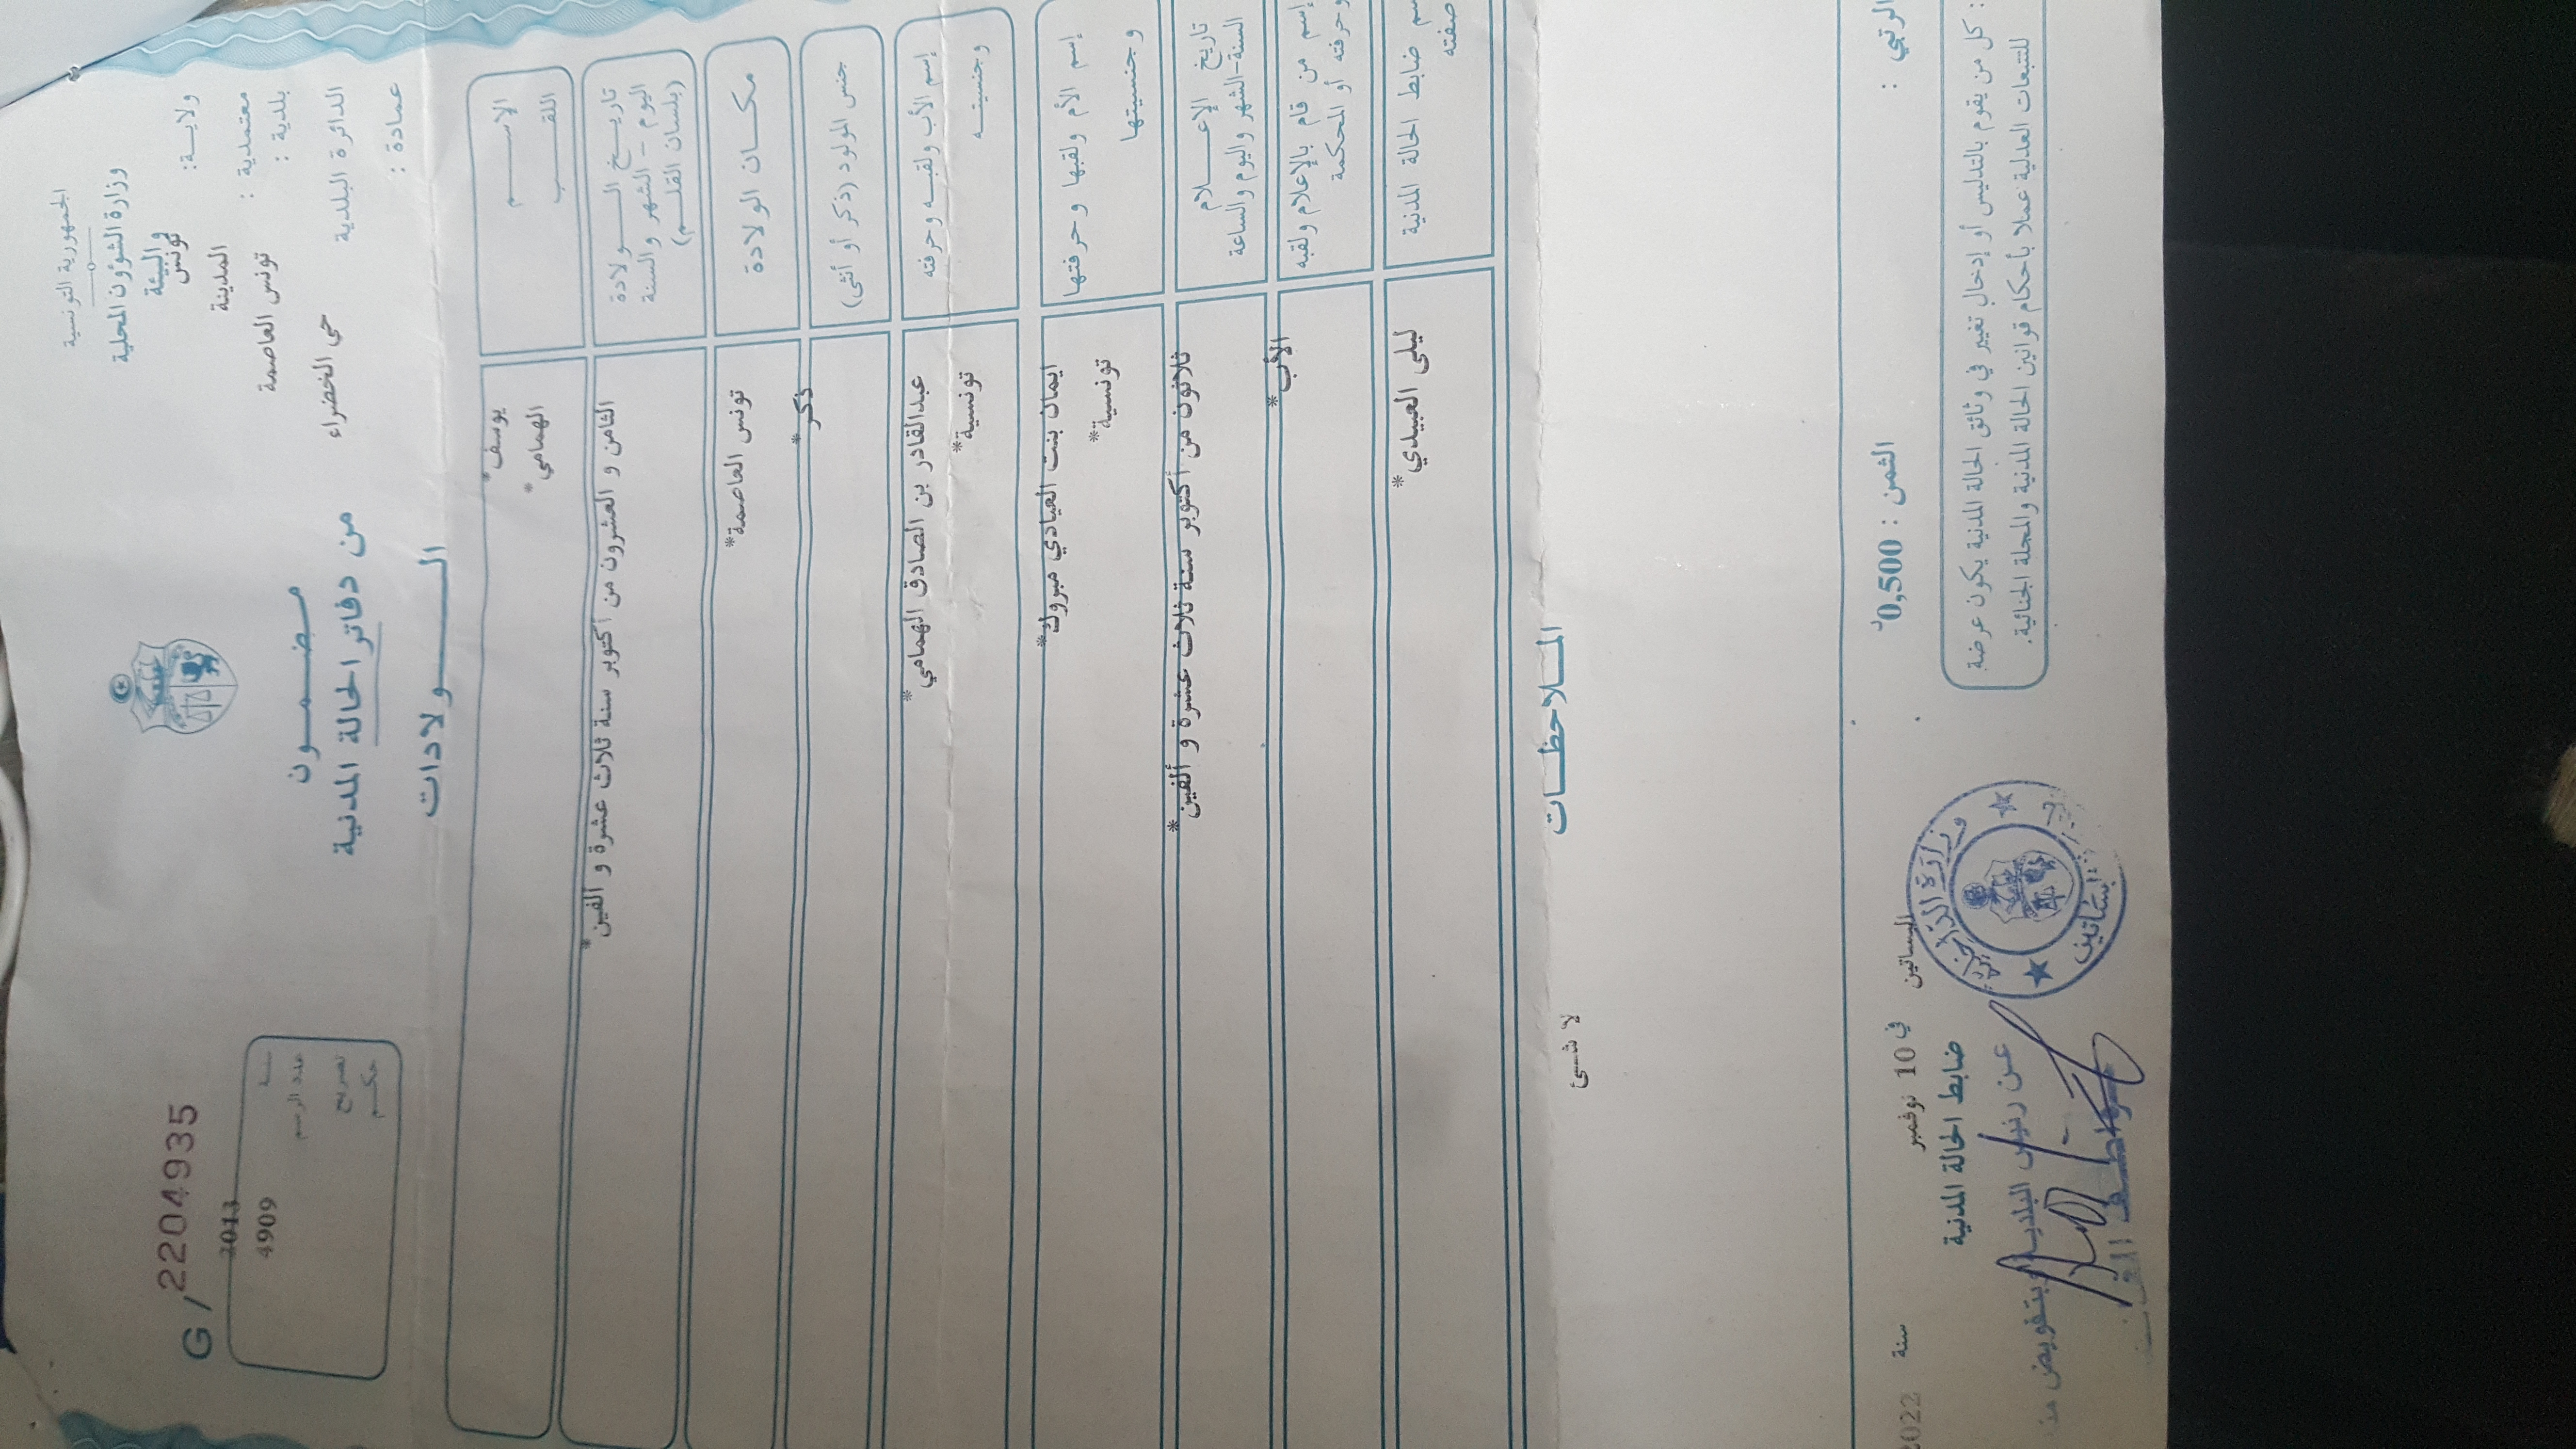 الجمهورية التونسية
وزارة الشؤون المحلية
والبيئة
ولايـة: تونس
معتمدية : المدينة
بلدية : تونس العاصمة
الدائرة البلدية حي الخضراء
عمادة :
مـضـمـــون
من دفاتر الحالة المدنية
الـــــولادات
G / 2204935
سنة 2013
عدد الرسم 4909
تصريح
حكـم
الاســـــم يوسف*
اللقـــــب الهمامي*
تاريــخ الـــولادة
اليوم - الشهر والسنة
(بلسان القلـم)
الثامن و العشرون من أكتوبر سنة ثلاث عشرة و ألفين*
مكــان الولادة تونس العاصمة*
جنس المولود (ذكر أو أنثى) ذكر*
إسم الأب ولقبـه وحرفته عبدالقادر بن الصادق الهمامي*
وجنسيتــه تونسية*
إسم الأم ولقبها وحرفتها ايمان بنت العيادي مبروك*
وجنسيتها تونسية*
تاريخ الإعـــلام
السنة-الشهر واليوم والساعة
ثلاثون من أكتوبر سنة ثلاث عشرة و ألفين*
إسم من قام بالإعلام ولقبه
وحرفته أو المحكمة
الأب*
ضابط الحالة المدنية ليلى العبيدي*
صفته
المـــلاحظـــات
لا شـئ
الرتبي :
الثمن : 0,500د
البساتين في 10 نوفمبر سنة 2022
ضابط الحالة المدنية
: كل من يقوم بالتدليس أو إدخال تغيير في وثائق الحالة المدنية يكون عرضة
للتتبعات العدلية عملا بأحكام قوانين الحالة المدنية والمجلة الجنائية.
عـن رئيس البلدية وبتفويض منه
وزارة الداخلية
البساتين